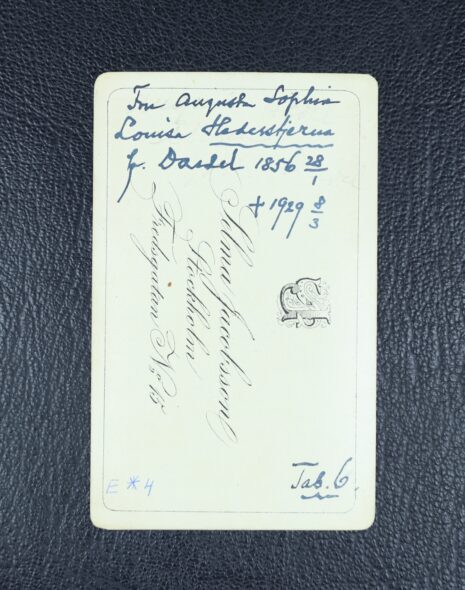 Fru Augusta Sophia
Louisa Hederstjerna
f. Dardel 1856 28/1
+ 1929 8/3
Selma Jacobsson
Stockholm
Fredsgatan No 15
E * 4
Tab. 6.